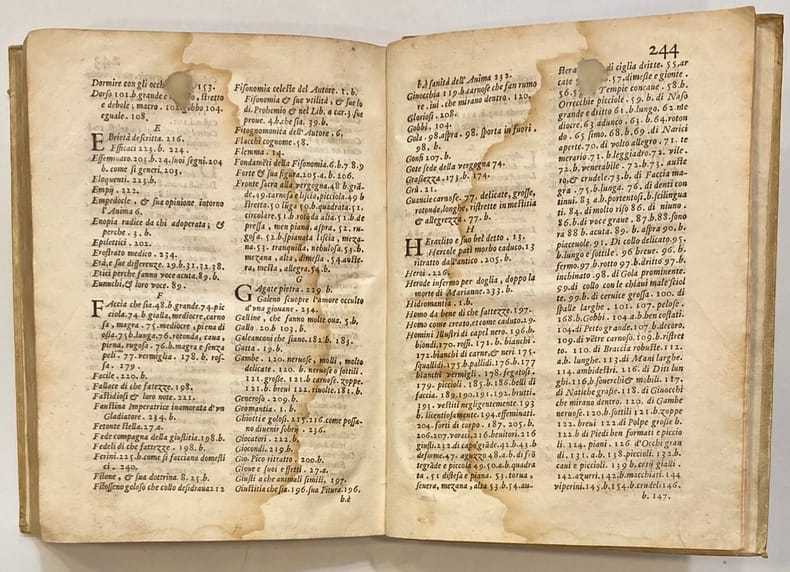 Dormire con gli occhi 153.
Dorso 101.b grande e stretto
e debole; macro. 102.gobbo 104.
eguale. 108.
E
EBrietà descritta. 216.
Efficoci 223.b. 224.
Effeminato.203.b.24.suoi segni.204
b. come si generi.203.
Eloquenti. 223.b.
Empij. 222.
Empedocle, & sua opinione intorno
l'Anima 6.
Enopia radice da chi adoperata, &
perche . 3. b.
Epilettici . 202.
Erostrato medico . 234.
Età,e sue differenze. 29.b.31.32.38.
Etici perche fanno voce acuta.89.b.
Eunuchi,& lor voce. 89.
F
FAccia che sia.48.b.grande.74.pic
ciola.74.b gialla,mediocre,carno
sa, magra .75.mediocre, piena di
ossa.75.b.lunga.76.rotonda, cava,
piena, rugosa. 76.b.magra e senza
peli. 77.vermiglia. 178.b. ros-
sa. 179.
Facile. 220.b.
Fallace di che fattezze. 198.
Fastidiosi & loro note. 221.
Faustina Imperatrice inamorata d'vn
Gladiatore . 234. b.
Fetonte stella.27.a.
Fede compagna della giustitia.198.b.
Fedeli di che fattezze . 198.b.
Ferini.225.b.come si facciano domesti
ci. 240.
Filone, & sua dottrina. 8.25.b.
Filosseno goloso che collo desidraua 212
Fisonomia celeste del Autore. 1.b.
Fisonomia & sue vtilità, & sue lo
di.Prohemio & nel Lib. a car.3; sue
proue. 4.b.che sia. 39.b.
Fitognomonica dell'Autore . 6.
Flacchi cognome.58.
Flemma. 14.
Fondamēti della Fisonomia.6.b.7.8.9
Forte & sua figura.205.a.b. 206.
Fronte sacra alla vergogna.48 b.grā-
de.49.carnosa e liscia,picciola.49 b
stretta.50 luga 50.b.quadrata.51.
circolare.51.b rotōda alta.51.b de
pressa , men piana, aspra. 52. ru-
gosa. 52.b.spianata liscia, meza-
na. 53. tranquilla, nebulosa. 53.b
mezana, alta, dimessa .54.auste-
ra, mesta, allegra.54.b.
G
GAgate pietra. 229. b.
Galeno scuopre l'amore occulto
d'vna giouane . 234.
Galline, che fanno molte oua. 5.b.
Gallo. 20.b 103. b.
Galeanconi che siano. 182.b. 183.
Gatta. 19. b.
Gambe . 120. neruose, molli, molto
delicate. 120. b. neruose o sottili .
121. grosse. 121.b carnose. zoppe.
121.b. breui 122. riuolte. 181. b.
Generoso. 209.b.
Geomantia . 1. b.
Ghiotti e golosi. 215. 216. come possa-
no diuenir sobrij . 236.
Giocatori . 222. b
Giocondi. 219.b.
Gio.Pico ritratto . 200.b.
Gioue e suoi effetti . 27.a.
Giusti a che animali simili, 197.
Giustitia che sia.196.sua Pitura.196.
b.è
b.è sanità dell'Anima 232.
Ginocchia 119.b.carnose che fan rumo
re.iui. che mirano dentro. 120.
Gloriosi. 208.
Gobbi. 104.
Gola. 98.aspra. 98. sporta in fuori.
98. b.
Gonfi 207.b.
Gote sede della vergogna 74.
Grassezza. 173.b. 174.
Grù. 21.
Guancie carnose. 77. delicate, grosse,
rotonde,longhe, ristrette in mestitia
& allegrezza . 77. b.
H
HEraclito e suo bel detto . 13.
Hercole patì morbo caduco.13
ritratto dall'antico. 205. b.
Heroi. 226.
Herode infermo per doglia, doppo la
morte di Marianne. 233.b.
Hidromantia. 1.b.
Homo da bene di che fattezze. 197.
Homo come creato,et come caduto.29.
Homini Illustri di capel nero. 196.b.
biondi.170.rossi. 171. b. bianchi .
172.bianchi di carne,& neri 175.
squallidi.175.b.pallidi. 176.b.177
bianchi vermigli. 178. fegatosi.
179. piccioli. 185.b.186.belli di
faccia. 189.190.191.192.brutti.
193. vestiti negligentemente. 193
b. licentiosamente. 194.effeminati.
204. forti di corpo. 187. 205.b.
206.207.voraci.216.beuitori. 216
giusti.232.di capo grāde.42.b.43.b
deforme.47. aguzzo 48.a.b. di frō
te grāde e picciola 49.50.a.b. quadra
ta . 51 distesa e piana. 53. torua ,
seuera, mezana, alta 53.b.54.au-
244
stera di ciglia dritte. 55.ar
cate 57.dimesse e gionte.
56.57 Tempie concaue. 58.b.
Orrecchie picciole. 59.b. di Naso
grande e dritto 61.b.lungo. 62. me
diocre. 63 adunco. 63. b. 64.roton
do . 65 simo. 68.b.69.di Narici
aperte.70.di volto allegro. 71. te
merario 71. b. leggiadro.72. vile .
72.b. venerabile .72.b.73. auste
ro,e crudele. 73.b. di Faccia ma-
gra. 75.b.lunga.76. di denti con
tinui. 83 a.b. portentosi.b.scilingua
ti. 84. di molto riso 86. di niuno .
86.b.di voce graue. 87.b.88.sono
ra 88 b. acuta. 89. b. aspra 90.b.
piaceuole. 91. Di collo delicato.95.
b.lungo e sottile. 96 breue. 96.b.
fermo.97.b.roto 97.b.dritto 97.b.
inchinato.98.di Gola prominente.
99.di collo con le chiaui male sciol
te. 99.b. di ceruice grossa. 100. di
spalle larghe . 101. 107. pelose .
168.b.Gobbi. 104.a.b.ben costati.
104.di Petto grande. 107.b.decoro.
109.di vētre carnoso. 109.b.ristret
to. 110 di Braccia robuste. 112.
a.b. lunghe. 113.di Mani larghe.
114. ambidestri . 116. di Diti lun
ghi. 116.b souerchi & mobili. 117.
di Natiche grasse. 118. di Ginocchi
che mirano dentro. 120. di Gambe
neruose . 120.b.sottili 121.b.zoppe
122. breui 122. di Polpe grosse b.
122 b di Piedi ben formati e piccio
li. 124. piani . 126. d'Occhi gran
di. 131. a.b. 138.piccioli. 132.b.
caui e piccioli. 139.b cesij gialli.
142.azurri. 142.b.macchiati. 144
viperini 145.b.154.b.crudeli 146.
b. 147.